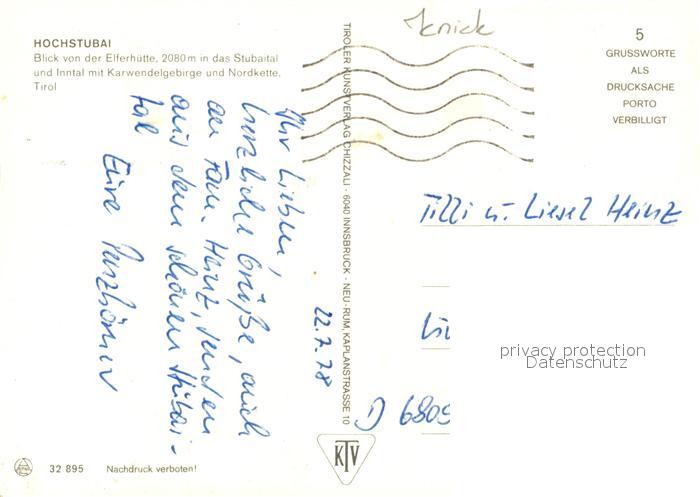 knick
HOCHSTUBAI
Blick von der Elferhütte, 2080 m in das Stubaital
und Inntal mit Karwendelgebirge und Nordkette,
Tirol
5
GRUSSWORTE
ALS
DRUCKSACHE
PORTO
VERBILLIGT
TIROLER KUNSTVERLAG CHIZZALI · 6040 INNSBRUCK · NEU-RUM, KAPLANSTRASSE 10
22.7.78
Ihr Lieben,
herzliche Grüße, auch
an Fam. Heinz, senden
aus dem schönen Stubai-
tal
Eure
Tilli u. Liesel Heinz
D 6805
privacy protection
Datenschutz
KTV
32 895 Nachdruck verboten!